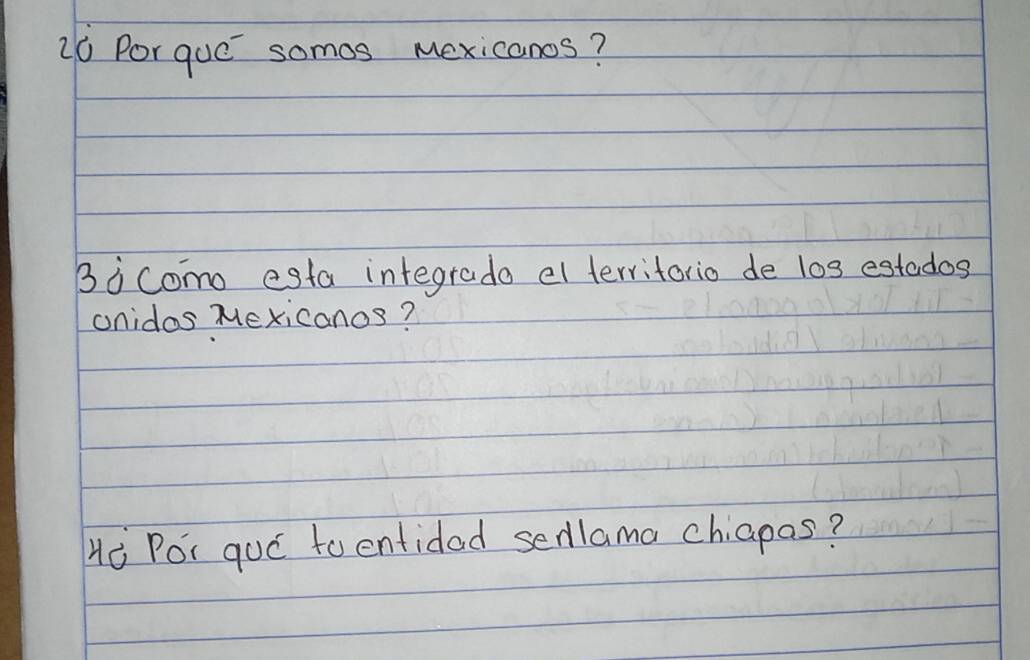 2¿ Porqué somos Mexicanos?
3¿ Como esta integrado el territorio de los estados
unidos Mexicanos?
4¿ Por qué tu entidad se llama chiapas?